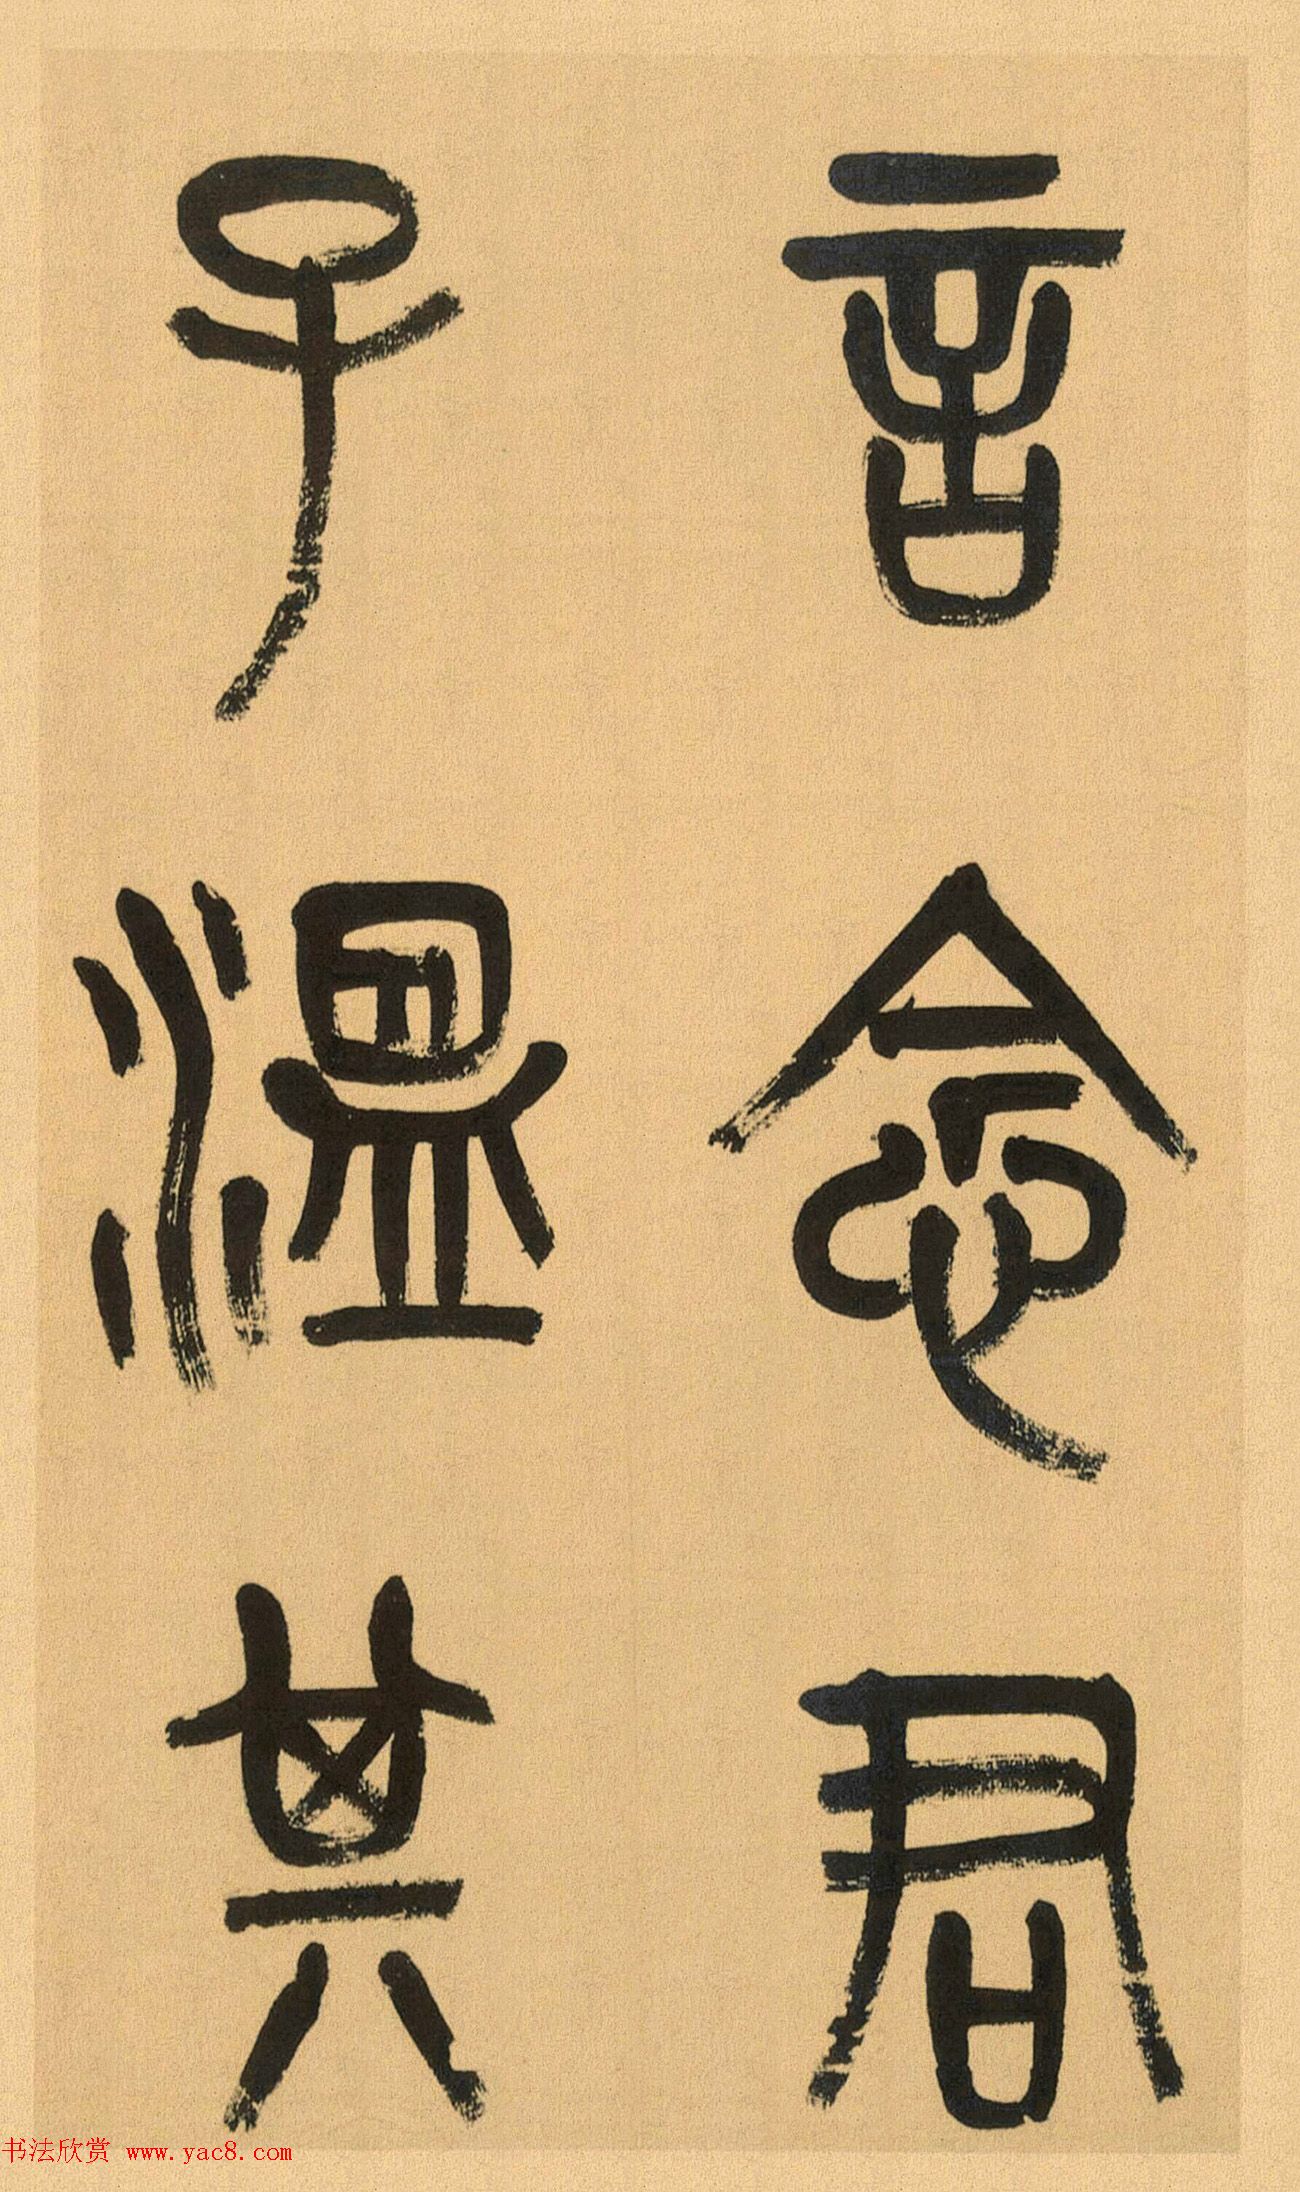 言念君
子溫其
书法欣赏 www.yac8.com